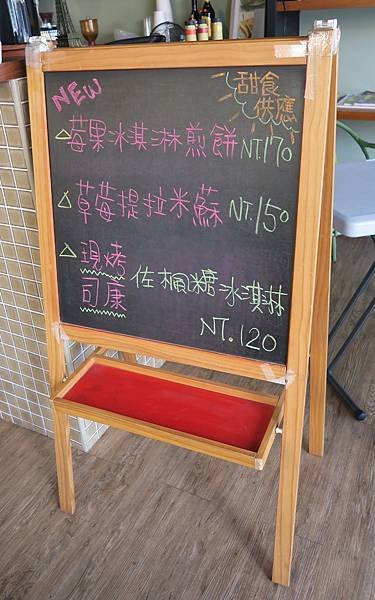 NEW
甜食
供應
莓果冰淇淋煎餅 NT.170
草莓提拉米蘇 NT.150
現烤
司康 佐楓糖冰淇淋
NT.120